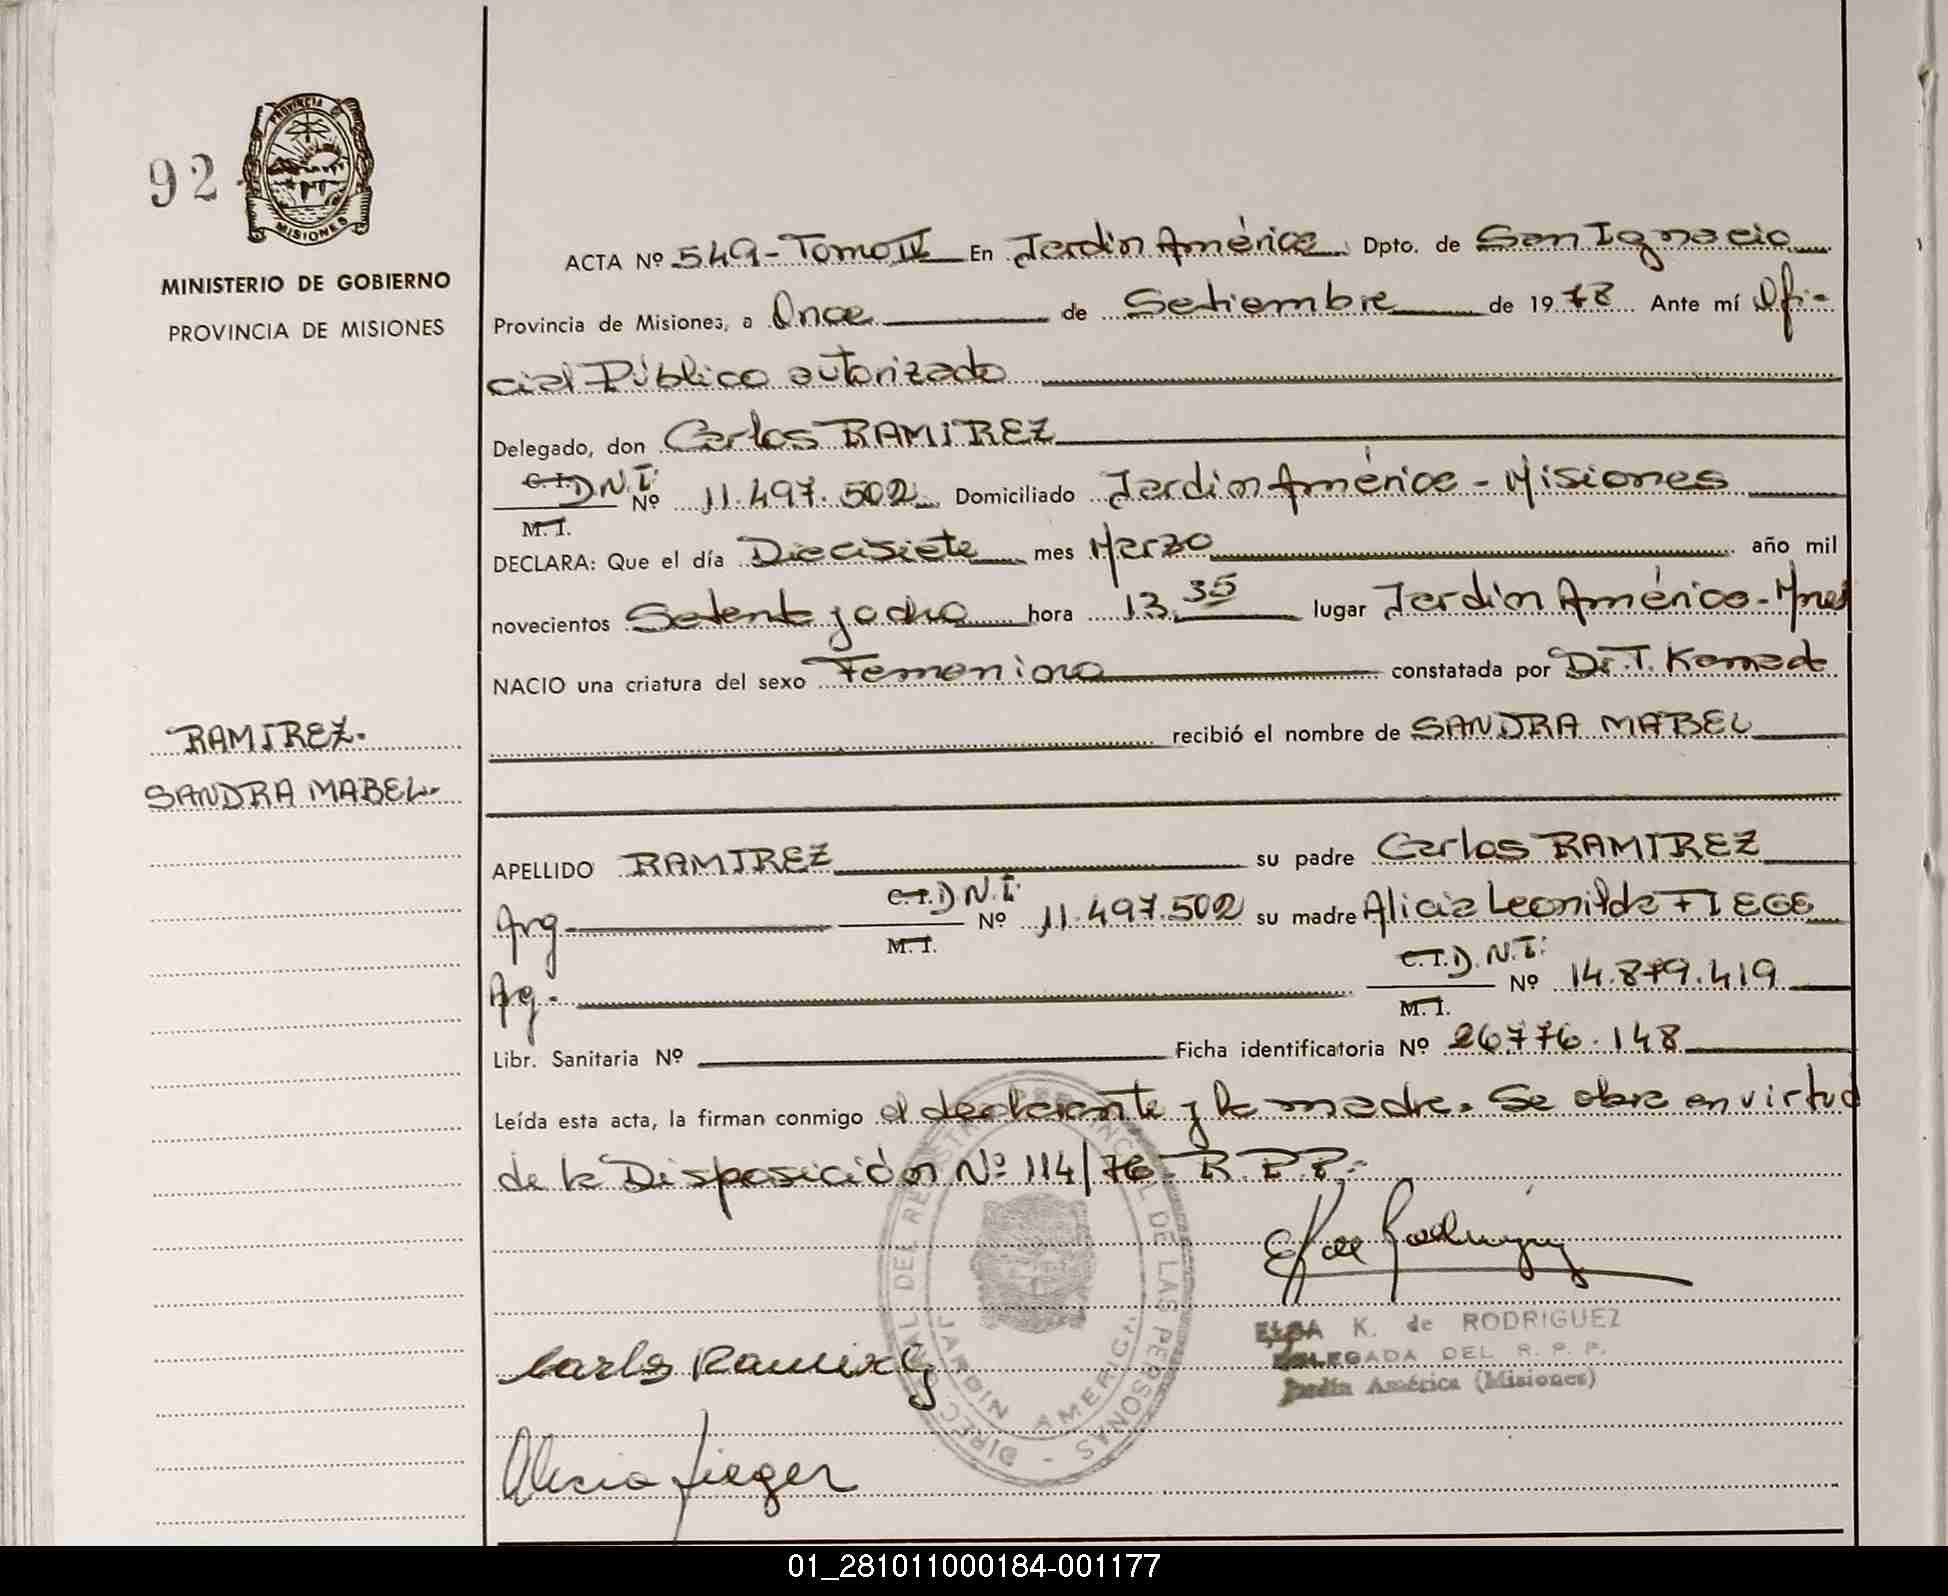 92
PROVINCIA DE
MISIONES
MINISTERIO DE GOBIERNO
PROVINCIA DE MISIONES
RAMIREZ.
SANDRA MABEL.
ACTA Nº 549-Tomo IV En Jardin América Dpto. de San Ignacio
Provincia de Misiones, a Once de Setiembre de 1978 Ante mí Ofi-
cial Público autorizado
Delegado, don Carlos RAMIREZ
C.I. D.N.I. Nº 11.497.502 Domiciliado Jardin América - Misiones
M.I.
DECLARA: Que el día Diecisiete mes Marzo año mil
novecientos Setenta y ocho hora 13.35 lugar Jardin América - Mnes
NACIO una criatura del sexo Femenino constatada por Dr. T.
recibió el nombre de SANDRA MABEL
APELLIDO RAMIREZ su padre Carlos RAMIREZ
Arg. C.I. D.N.I. Nº 11.497.502 su madre Alicia Leonilda
M.I.
Arg. C.I. D.N.I. Nº 14.879.419
M.I.
Libr. Sanitaria Nº Ficha identificatoria Nº 26776.148
Leída esta acta, la firman conmigo el declarante y la madre. Se labra en virtud
de la Disposición Nº 114/76 R.P.P.-
ELSA K. de RODRIGUEZ
DELEGADA DEL R. P. P.
Jardín América (Misiones)
Carlos Ramirez
Alicia Fieger
DEL REGISTRO PROVINCIAL DE LAS PERSONAS
JARDIN AMERICA
01_281011000184-001177